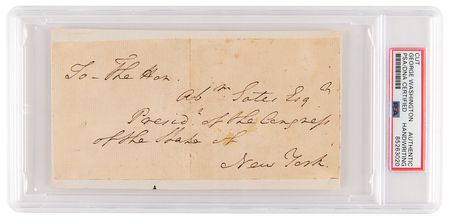 To - The Hon.
Abm Yates Esqr
Presidt of the Congress
of the State of
New York
CUT
GEORGE WASHINGTON AUTHENTIC
PSA/DNA CERTIFIED HANDWRITING
85263020